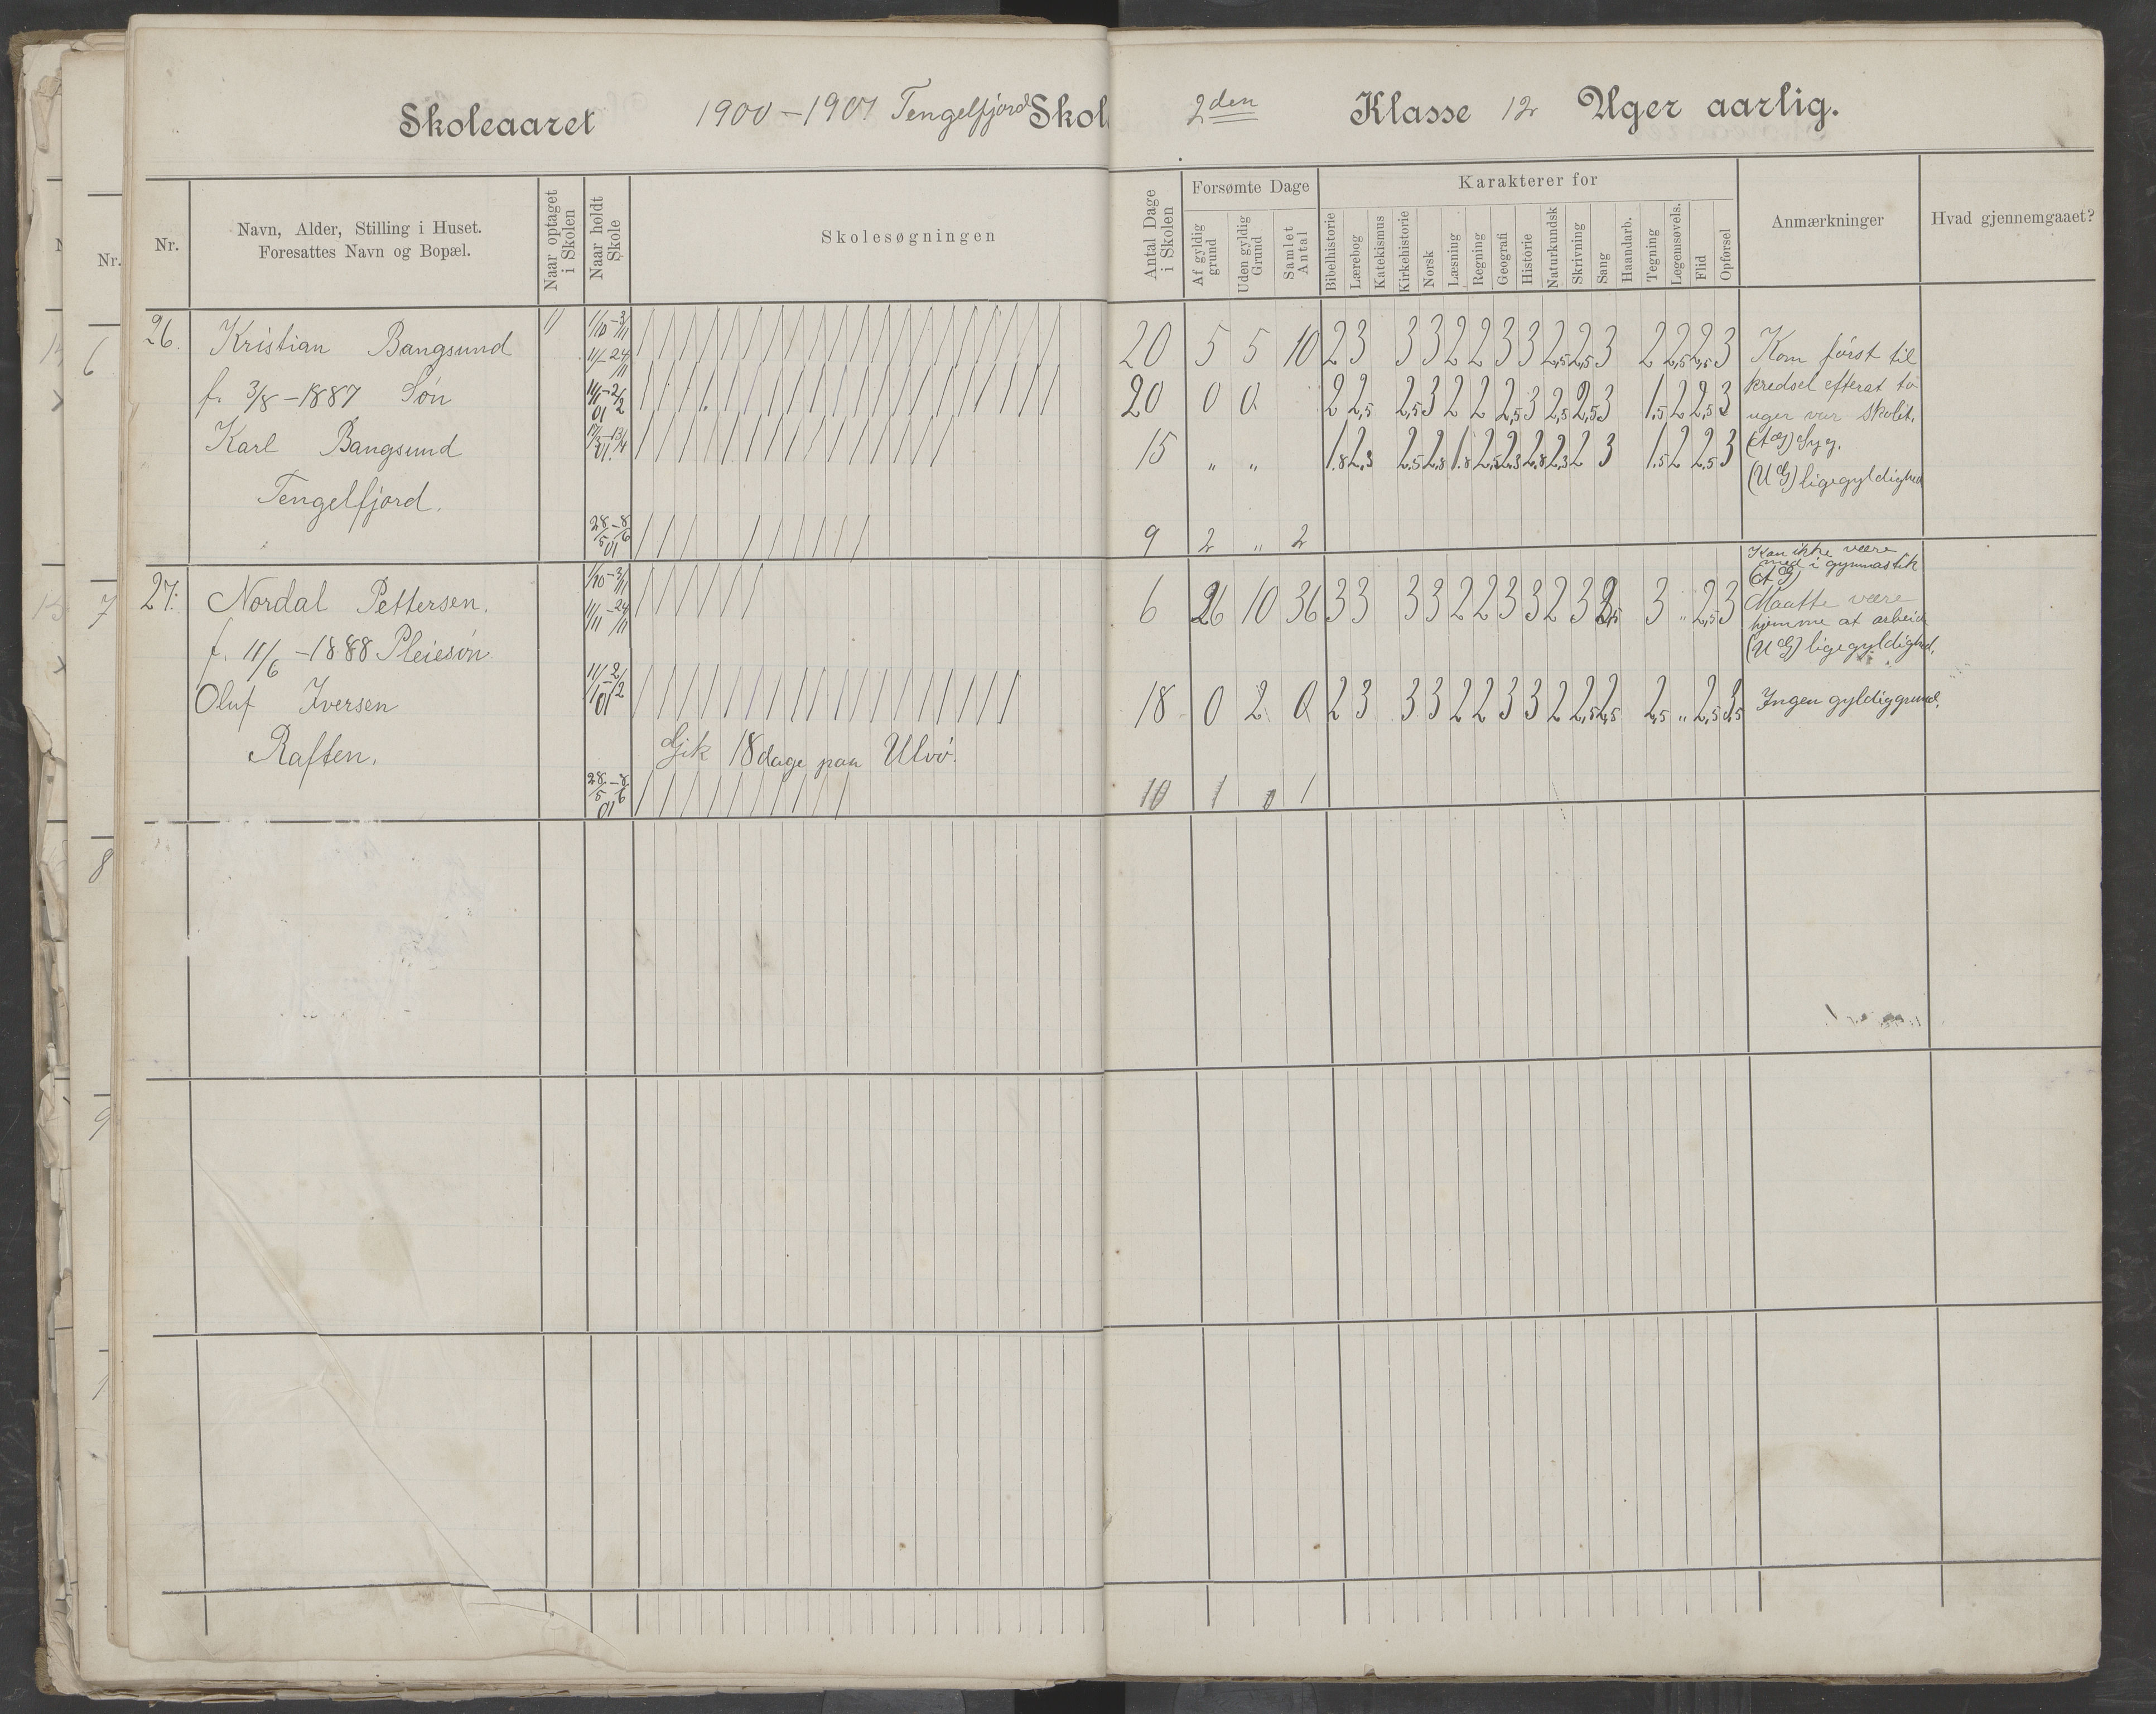 Skoleaaret 1900-1901 Tengelfjord Skol 2den Klasse 12 Uger aarlig.
Nr.
Navn, Alder, Stilling i Huset.
Foresattes Navn og Bopæl.
Naar optaget
i Skolen
Naar holdt
Skole
Skolesøgningen
Antal Dage
i Skolen
Forsømte Dage
Af gyldig
grund
Uden gyldig
Grund
Samlet
Antal
Karakterer for
Bibelhistorie
Lærebog
Katekismus
Kirkehistorie
Norsk
Læsning
Regning
Geografi
Historie
Naturkundsk
Skrivning
Sang
Haandarb.
Tegning
Legemsøvels.
Flid
Opførsel
Anmærkninger
Hvad gjennemgaaet?
26. Kristian Bangsund
f. 3/8-1887 Søn
Karl Bangsund
Tengelfjord.
1/10-3/11
11/11-24/11
28/5-8/6 01
20 5 5 10 2 3 3 3 2 2 3 3 2,5 2,5 3 2 2,5 2,5 3
20 0 0 2 2,5 2,5 3 2 2 2,5 3 2,5 2,5 3 1,5 2 2,5 3
15 " " 1.8 2,3 2.5 2,8 1.8 2,5 2,3 2,8 2,3 2 3 1.5 2 2.5 3
9 2 " 2
Kom først til
kredsel efterat to
uger var skolet.
(AG) Syg.
(UG) ligegyldighed
27. Nordal Pettersen.
f. 11/6-1888 Pleiesøn
Oluf Iversen
Raften.
1/10-3/11
11/11-24/11
11/1-2/2 01
Gik 18 dage paa Ulvø.
28/5-8/6 01
6 26 10 36 3 3 3 3 2 2 3 3 2 3 3 2,5 3 " 2,5 3
18 0 2 0 2 3 3 3 2 2 3 3 2 2,5 2,5 2,5 " 2,5 3,5
10 1 0 1
Kan ikke være
med i gymnastik
(AG)
Maatte være
hjemme at arbeide
(UG) ligegyldighed.
Ingen gyldig grund.
Nr.
6
7
8
9